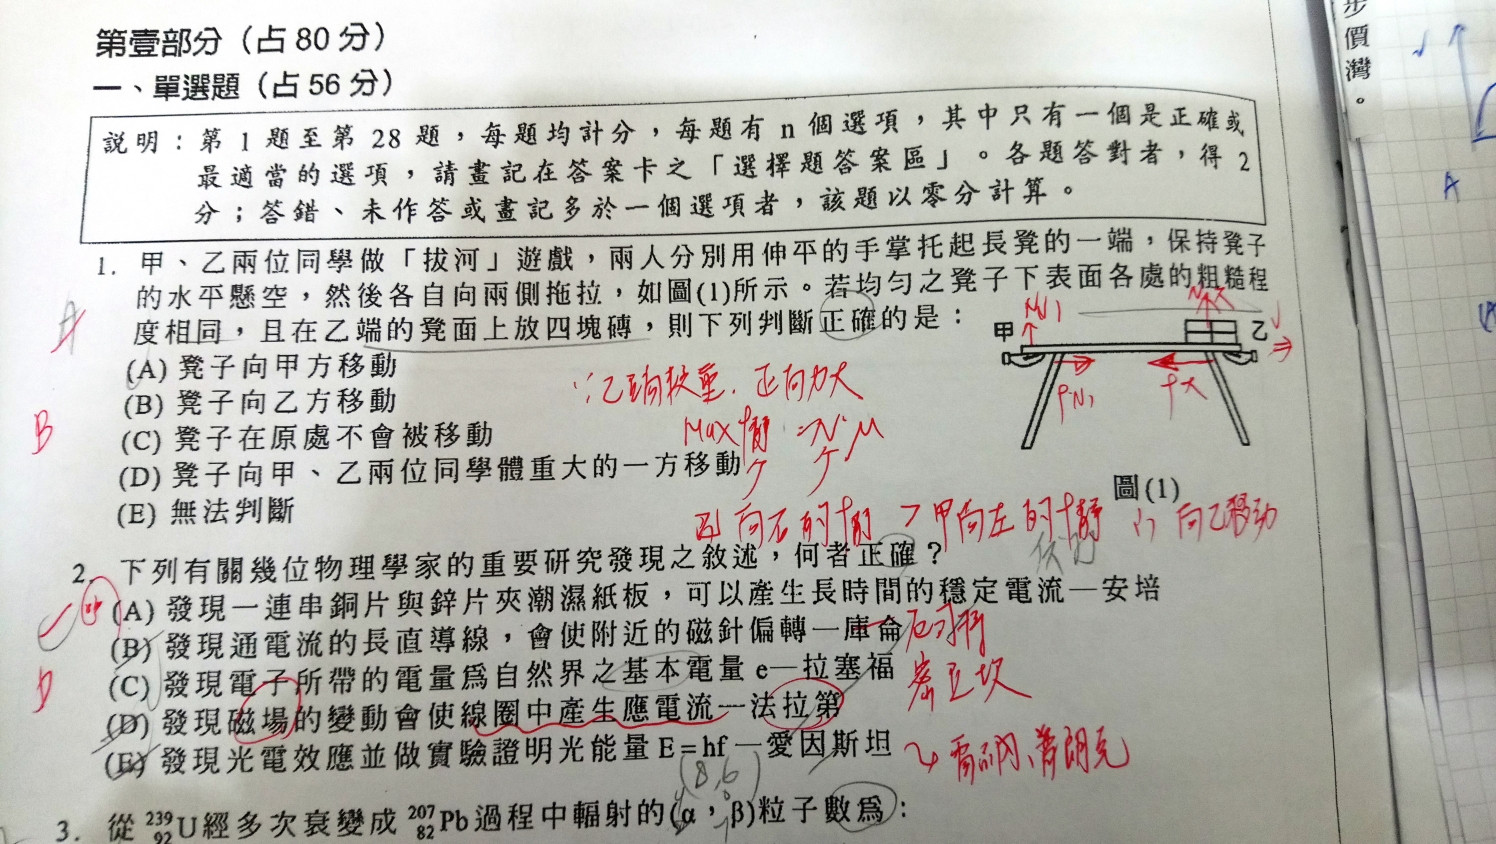 第壹部分（占80分）
一、單選題（占56分）
說明：第1題至第28題，每題均計分，每題有n個選項，其中只有一個是正確或
最適當的選項，請畫記在答案卡之「選擇題答案區」。各題答對者，得2
分；答錯、未作答或畫記多於一個選項者，該題以零分計算。
1. 甲、乙兩位同學做「拔河」遊戲，兩人分別用伸平的手掌托起長凳的一端，保持凳子
的水平懸空，然後各自向兩側拖拉，如圖(1)所示。若均勻之凳子下表面各處的粗糙程
度相同，且在乙端的凳面上放四塊磚，則下列判斷正確的是：
甲
乙
N1
A
(A) 凳子向甲方移動
(B) 凳子向乙方移動
(C) 凳子在原處不會被移動
(D) 凳子向甲、乙兩位同學體重大的一方移動
(E) 無法判斷
B
∵乙端較重．正向力大
Max f靜 = N·μ
圖(1)
向右的f靜 > 甲向左的f靜 ∴向乙移动
2. 下列有關幾位物理學家的重要研究發現之敘述，何者正確？
(A) 發現一連串銅片與鋅片夾潮濕紙板，可以產生長時間的穩定電流—安培
(B) 發現通電流的長直導線，會使附近的磁針偏轉—庫侖
(C) 發現電子所帶的電量為自然界之基本電量 e—拉塞福
(D) 發現磁場的變動會使線圈中產生應電流—法拉第
(E) 發現光電效應並做實驗證明光能量E=hf—愛因斯坦
D
密立坎
普朗克
(8,6)
3. 從 ²³⁹₉₂U經多次衰變成 ²⁰⁷₈₂Pb過程中輻射的(α，β)粒子數為：
步
價
灣。
A